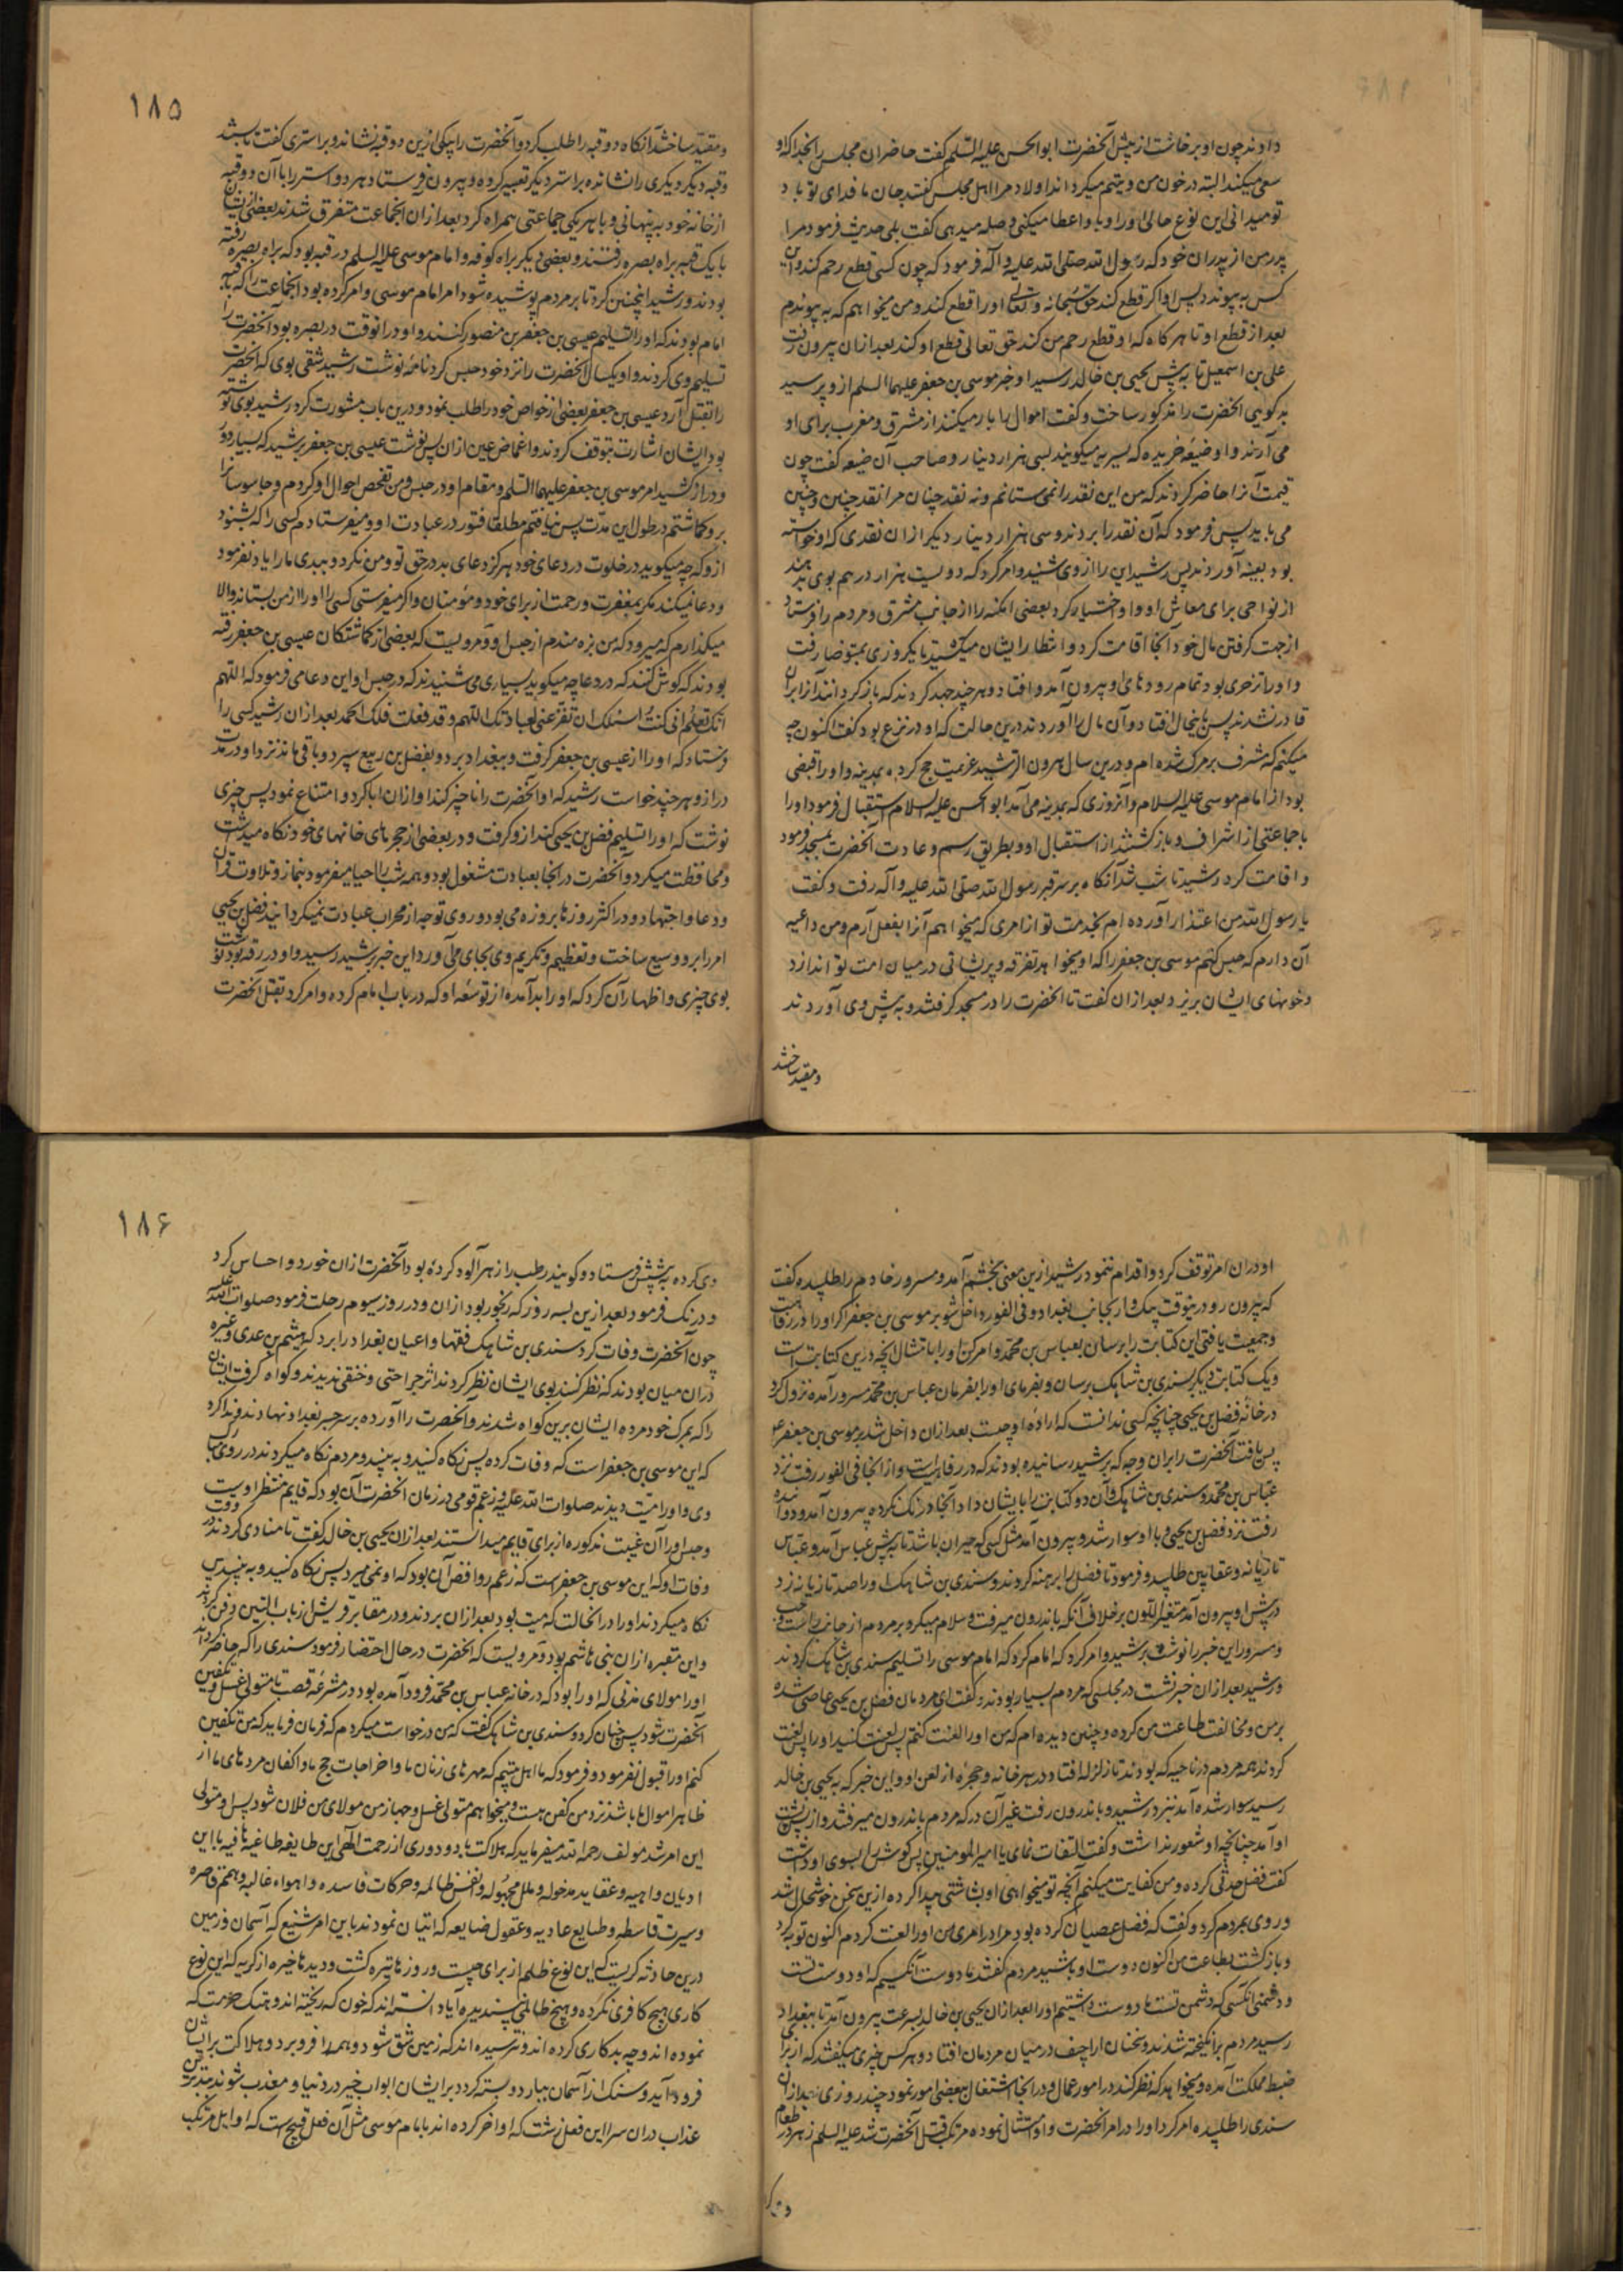 دادند چون او برخاست از پیش آنحضرت ابو الحسن علیه السلم گفت حاضران مجلس را بخدا که او
سعی میکند البته در خون من و یتیم میکرداند اولاد مرا اهل مجلس گفتند جان ما فدای تو باد
تو میدانی این نوع حالی او را و با و اعطا میکنی و صله میدهی گفت بلی حدیث فرمود مرا
پدر من از پدران خود که رسول الله صلی الله علیه و آله فرمود که چون کسی قطع رحم کند و این
کس به پیوندد پس او اکر قطع کند حق سبحانه و تعالی او را قطع کند و من میخواهم که به پیوندم
بعد از قطع او تا هرکاه که او قطع رحم من کند حق تعالی قطع او کند بعد ازان بیرون رفت
علی بن اسمعیل تا به پیش یحیی بن خالد رسید او خبر موسی بن جعفر علیهما السلم ازو پرسید
بدکویی آنحضرت را مذکور ساخت و گفت اموال را بار میکنند از مشرق و مغرب برای او
می آرند و او ضیعه خریده که یسیریه میکویند بسی هزار دینار و صاحب آن ضیعه گفت چون
قیمت آنرا حاضر کردند که من این نقد را نمی ستانم و نه نقد چنان مرا نقد چنین و چنین
می باید پس فرمود که آن نقد را بردند و سی هزار دینار دیکر ازان نقدی که او خواسته
بود بعینه آوردند پس رشید این را از وی شنید و امر کرد که دویست هزار درهم بوی بدهند
از نواحی برای معاش او و او اختیار کرد بعضی امکنه را از جانب مشرق و مردم را فرستاد
از جهت کرفتن مال خود آنجا اقامت کرد و انتظار ایشان میکشید تا یکروزی بمتوضا رفت
و او را تزحری بود تمام رودهای او بیرون آمد و افتاد و هرچند جهد کردند که باز کردانند آنرا بران
قادر نشدند پس باینحال افتاد و آن مال را آوردند درین حالت که او در نزع بود گفت کنون چه
میکنم که مشرف بر مرک شده ام و درین سال هرون الرشید عزیمت حج کرد به مدینه و او را قبضی
بود از امام موسی علیه السلام و آنروزی که بمدینه می آمد ابو الحسن علیه السلام استقبال فرمود او را
با جماعتی از اشراف و باز کشتند از استقبال او و بطریق رسم و عادت آنحضرت بمسجد فرمود
و اقامت کرد رشید تا شب شد آنکاه بر سر قبر رسول الله صلی الله علیه و آله رفت و گفت
یا رسول الله من اعتذار آورده ام بخدمت تو از امری که میخواهم آنرا بفعل آرم و من داعیه
آن دارم که حبس کنم موسی بن جعفر را که او میخواهد تفرقه و پریشانی در میان امت تو اندازد
و خونهای ایشان بریزد بعد ازان گفت تا آنحضرت را در مسجد کرفتند و به پیش وی آوردند
و مقید ساختند
۱۸۵
و مقید ساختند آنکاه دو قبه را طلب کرد و آنحضرت را بیکی ازین دو قبه نشاند و بر استری گفت تا بستند
و قبه دیکر دیکری را نشانده بر استر دیکر تعبیه کرده و بیرون فرستاد هر دو استر را با آن دو قبه
از خانه خود به پنهانی و با هر یکی جماعتی همراه کرد بعد ازان آنجماعت متفرق شدند بعضی از ایشان
با یک قبه براه بصره رفتند و بعضی دیکر براه کوفه و امام موسی علیه السلم در قبه بود که براه بصره رفته
بودند و رشید اینچنین کرد تا بر مردم پوشیده شود امر امام موسی و امر کرده بود آنجماعت را که با قبه
امام بودند که او را تسلیم عیسی بن جعفر بن منصور کنند و او درانوقت در بصره بود آنحضرت را
تسلیم وی کردند و او یکسال آنحضرت را نزد خود حبس کرد نامه نوشت رشید شقی بوی که آنحضرت
را بقتل آرد عیسی بن جعفر بعضی از خواص خود را طلب نمود و درین باب مشورت کرد رشید بوی نوشته
بود ایشان اشارت بتوقف کردند و اغماض عین ازان پس نوشت عیسی بن جعفر برشید که بسیار دور
و دراز کشید امر موسی بن جعفر علیهما السلم و مقام او در حبس و من تفحص احوال او کردم و جاسوسان را
برو کماشتم در طول این مدت پس نیافتم مطلقا فتور در عبادت او و میفرستادم کسی را که بشنود
ازو که چه میکوید در خلوت در دعای خود هرکز دعای بد در حق تو و من نکرد و ببدی ما را یاد نفرمود
و دعا نمیکند مکر بمغفرت و رحمت از برای خود و مؤمنان و اکر میفرستی کسی را او را از من بستاند و الا
میکذارم که میرود که من بزه مندم از حبس او و مرویست که بعضی از کماشتکان عیسی بن جعفر رفته
بودند که کوش کنند که در دعا چه میکوید بسیاری می شنیدند که در حبس او این دعا می فرمود که اللهم
انک تعلم انی کنت اسئلک ان تفرغنی لعبادتک اللهم و قد فعلت فلک الحمد بعد ازان رشید کسی را
فرستاد که او را از عیسی بن جعفر کرفت و ببغداد برد و بفضل بن ربیع سپرد و باقی ماند نزد او در مدت
دراز و هرچند خواست رشید که او آنحضرت را ناچیز کند او ازان ابا کرد و امتناع نمود پس چیزی
نوشت که او را تسلیم فضل بن یحیی کند ازو کرفت و در بعضی از حجرهای خانهای خود نکاه میداشت
و محافظت میکرد و آنحضرت در آنجا بعبادت مشغول بود و همه شب را احیا میفرمود بنماز و تلاوت قرآن
و دعا و اجتهاد و در اکثر روزها بروزه می بود و روی توجه از محراب عبادت نمیکردانید فضل بن یحیی
امر را برو وسیع ساخت و تعظیم و تکریم وی بجای می آورد این خبر برشید رسید و او در رقه بود نوشت
بوی چیزی و اظهار آن کرد که او را بد آمده از توسعه او که در باب امام کرده و امر کرد بقتل آنحضرت
او دران امر توقف کرد و اقدام ننمود رشید ازین معنی بخشم آمد و مسرور خادم را طلبیده گفت
که بیرون رو درینوقت بجانب بغداد و فی الفور داخل شو بر موسی بن جعفر اکر او را در رفاهت
و جمعیت یافتی این کتابت را برسان بعباس بن محمد و امر کن او را بامتثال آنچه درین کتابت است
و یک کتابت دیکر بسندی بن شاهک برسان و بفرمای او را بفرمان عباس بن محمد مسرور آمده نزول کرد
در خانه فضل بن یحیی چنانچه کسی ندانست که اراده او چیست بعد ازان داخل شد بر موسی بن جعفر ع
پس یافت آنحضرت را بران وجه که برشید رسانیده بودند که در رفاهیت است و از آنجا فی الفور رفت نزد
عباس بن محمد و سندی بن شاهک و آن دو کتابت را بایشان داد آنجا درنک نکرده بیرون آمد و دوانیده
رفت نزد فضل بن یحیی و با او سوار شد و بیرون آمد مثل کسی که حیران باشد تا به پیش عباس آمد و عباس
تازیانه و عقابین طلبید و فرمود تا فضل را برهنه کردند و سندی بن شاهک او را صد تازیانه زد
در پیش او بیرون آمد متغیر اللون بر خلاف آنکه باندرون میرفت و سلام میکرد بر مردم از جانب راست و چپ
و مسرور این خبر را نوشت برشید و امر کرد که امام موسی را تسلیم سندی بن شاهک کردند
و رشید بعد ازان خبر نشست در مجلسی که مردم بسیار بودند و گفت ای مردمان فضل بن یحیی عاصی شده
بر من و مخالفت طاعت من کرده و چنین دیده ام که من او را لعنت کنم پس لعنت کنید او را پس لعنت
کردند همه مردم در ناحیه که بودند تا زلزله افتاد در هر خانه و حجره از لعن او و این خبر که به یحیی بن خالد
رسید سوار شده آمد نزد رشید و باندرون رفت غیر آن در که مردم باندرون میرفتند و از پس پشت
او آمد چنانچه او شعور نداشت و گفت التفات نمای یا امیر المومنین پس کوش را بسوی او داشت
گفت فضل حدثی کرده و من کفایت میکنم آنچه تو میخواهی او بشاشتی پیدا کرده ازین سخن خوشحال شد
و روی بمردم کرد و گفت که فضل عصیان کرده بود مرا در امری من او را لعنت کردم اکنون توبه کرد
و بازکشت بطاعت من اکنون دوست او باشید مردم گفتند ما دوست آنکسیم که او دوست تست
و دشمن آنکسی که دشمن تست ما دوست داشتیم او را بعد ازان یحیی بن خالد بسرعت بیرون آمد تا ببغداد
رسید مردم برانگیخته شدند و سخنان اراجیف در میان مردمان افتاد و هر کس چیزی میگفتند که از برای
ضبط مملکت آمده و میخواهد که نظر کند در امور عمال و در آنجا اشتغال ببعضی امور نمود چند روزی بعد ازان
سندی را طلبیده امر کرد او را در امر آنحضرت و او امتثال نموده مرتکب قتل آنحضرت شد علیه السلم زهر در طعام
۱۸۶
وی کرده به پیشش فرستاد و کویند رطب را زهرآلود کرده بود آنحضرت ازان خورد و احساس کرد
و درنک فرمود بعد ازین بسه روز که رنجور بود ازان و در روز سیوم رحلت فرمود صلوات الله علیه
چون آنحضرت وفات کرد سندی بن شاهک فقها و اعیان بغداد را برد که هیثم بن عدی و غیره
دران میان بودند که نظر کنند بوی ایشان نظر کردند اثر جراحتی و خنقی ندیدند و کواه کرفت ایشان
را که بمرک خود مرده ایشان برین کواه شدند و آنحضرت را آورده بر سر جسر بغداد نهادند و ندا کرد
که این موسی بن جعفر است که وفات کرده پس نکاه کنید و به بینید و مردم نکاه میکردند در روی مبارک
وی و او را میت دیدند صلوات الله علیه و زعم قومی در زمان آنحضرت آن بود که قایم منتظر اویست
و حبس او را آن غیبت مذکوره از برای قایم میدانستند بعد ازان یحیی بن خالد گفت تا منادی کردند در وقت
وفات او که این موسی بن جعفر است که زعم روافض آن بود که او نمی میرد پس نکاه کنید و به بینید پس
نکاه میکردند او را درانحالت که میت بود بعد ازان بردند و در مقابر قریش از باب التین دفن کردند
و این مقبره ازان بنی هاشم بود و مرویست که آنحضرت در حال احتضار فرمود سندی را که حاضر کرداند
او را مولای مدنی که او را بود که در خانه عباس بن محمد فرود آمده بود در مشرعه قصب تا متولی غسل و تکفین
آنحضرت شود پس چنان کرد و سندی بن شاهک گفت که من درخواست میکردم که فرمان فرماید که من تکفین
کنم او را قبول نفرمود و فرمود که ما اهل بیتیم که مهرهای زنان ما و اخراجات حج ما و اکفان مردهای ما از
طاهر اموال ما باشد نزد من کفن هست و میخواهم متولی غسل و جهاز من مولای من فلان شود پس او متولی
این امر شد مولف رحمه الله میفرماید که هلاکت باد و دوری از رحمت الهی این طایفه طاغیه باغیه را باین
ادیان واهیه و عقاید مدخوله و ملل مجهوله و انفس ظالمه و حرکات فاسده و اهواء غالبه و همم قاصره
و سیرت قاسطه و طبایع عادیه و عقول ضایعه که اتیان نمودند باین امر شنیع که آسمان و زمین
درین حادثه گریست که این نوع ظلم از برای چیست و روزها تیره کشت و دیدها خیره از کریه که این نوع
کاری هیچ کافری نکرده و هیچ ظالمی نپسندیده آیا دانسته اند که خون که ریخته اند و هتک حرمت که
نموده اند و چه بدکاری کرده اند و نترسیده اند که زمین شق شود و همه را فرو برد و هلاکت بر ایشان
فرود آید و سنک از آسمان ببارد و بسته کردد بر ایشان ابواب خیر در دنیا و معذب شوند ببدترین
عذاب دران سرا این فعل زشت که اواخر کرده اند با امام موسی مثل آن فعل قبیح است که اوایل مرتکب